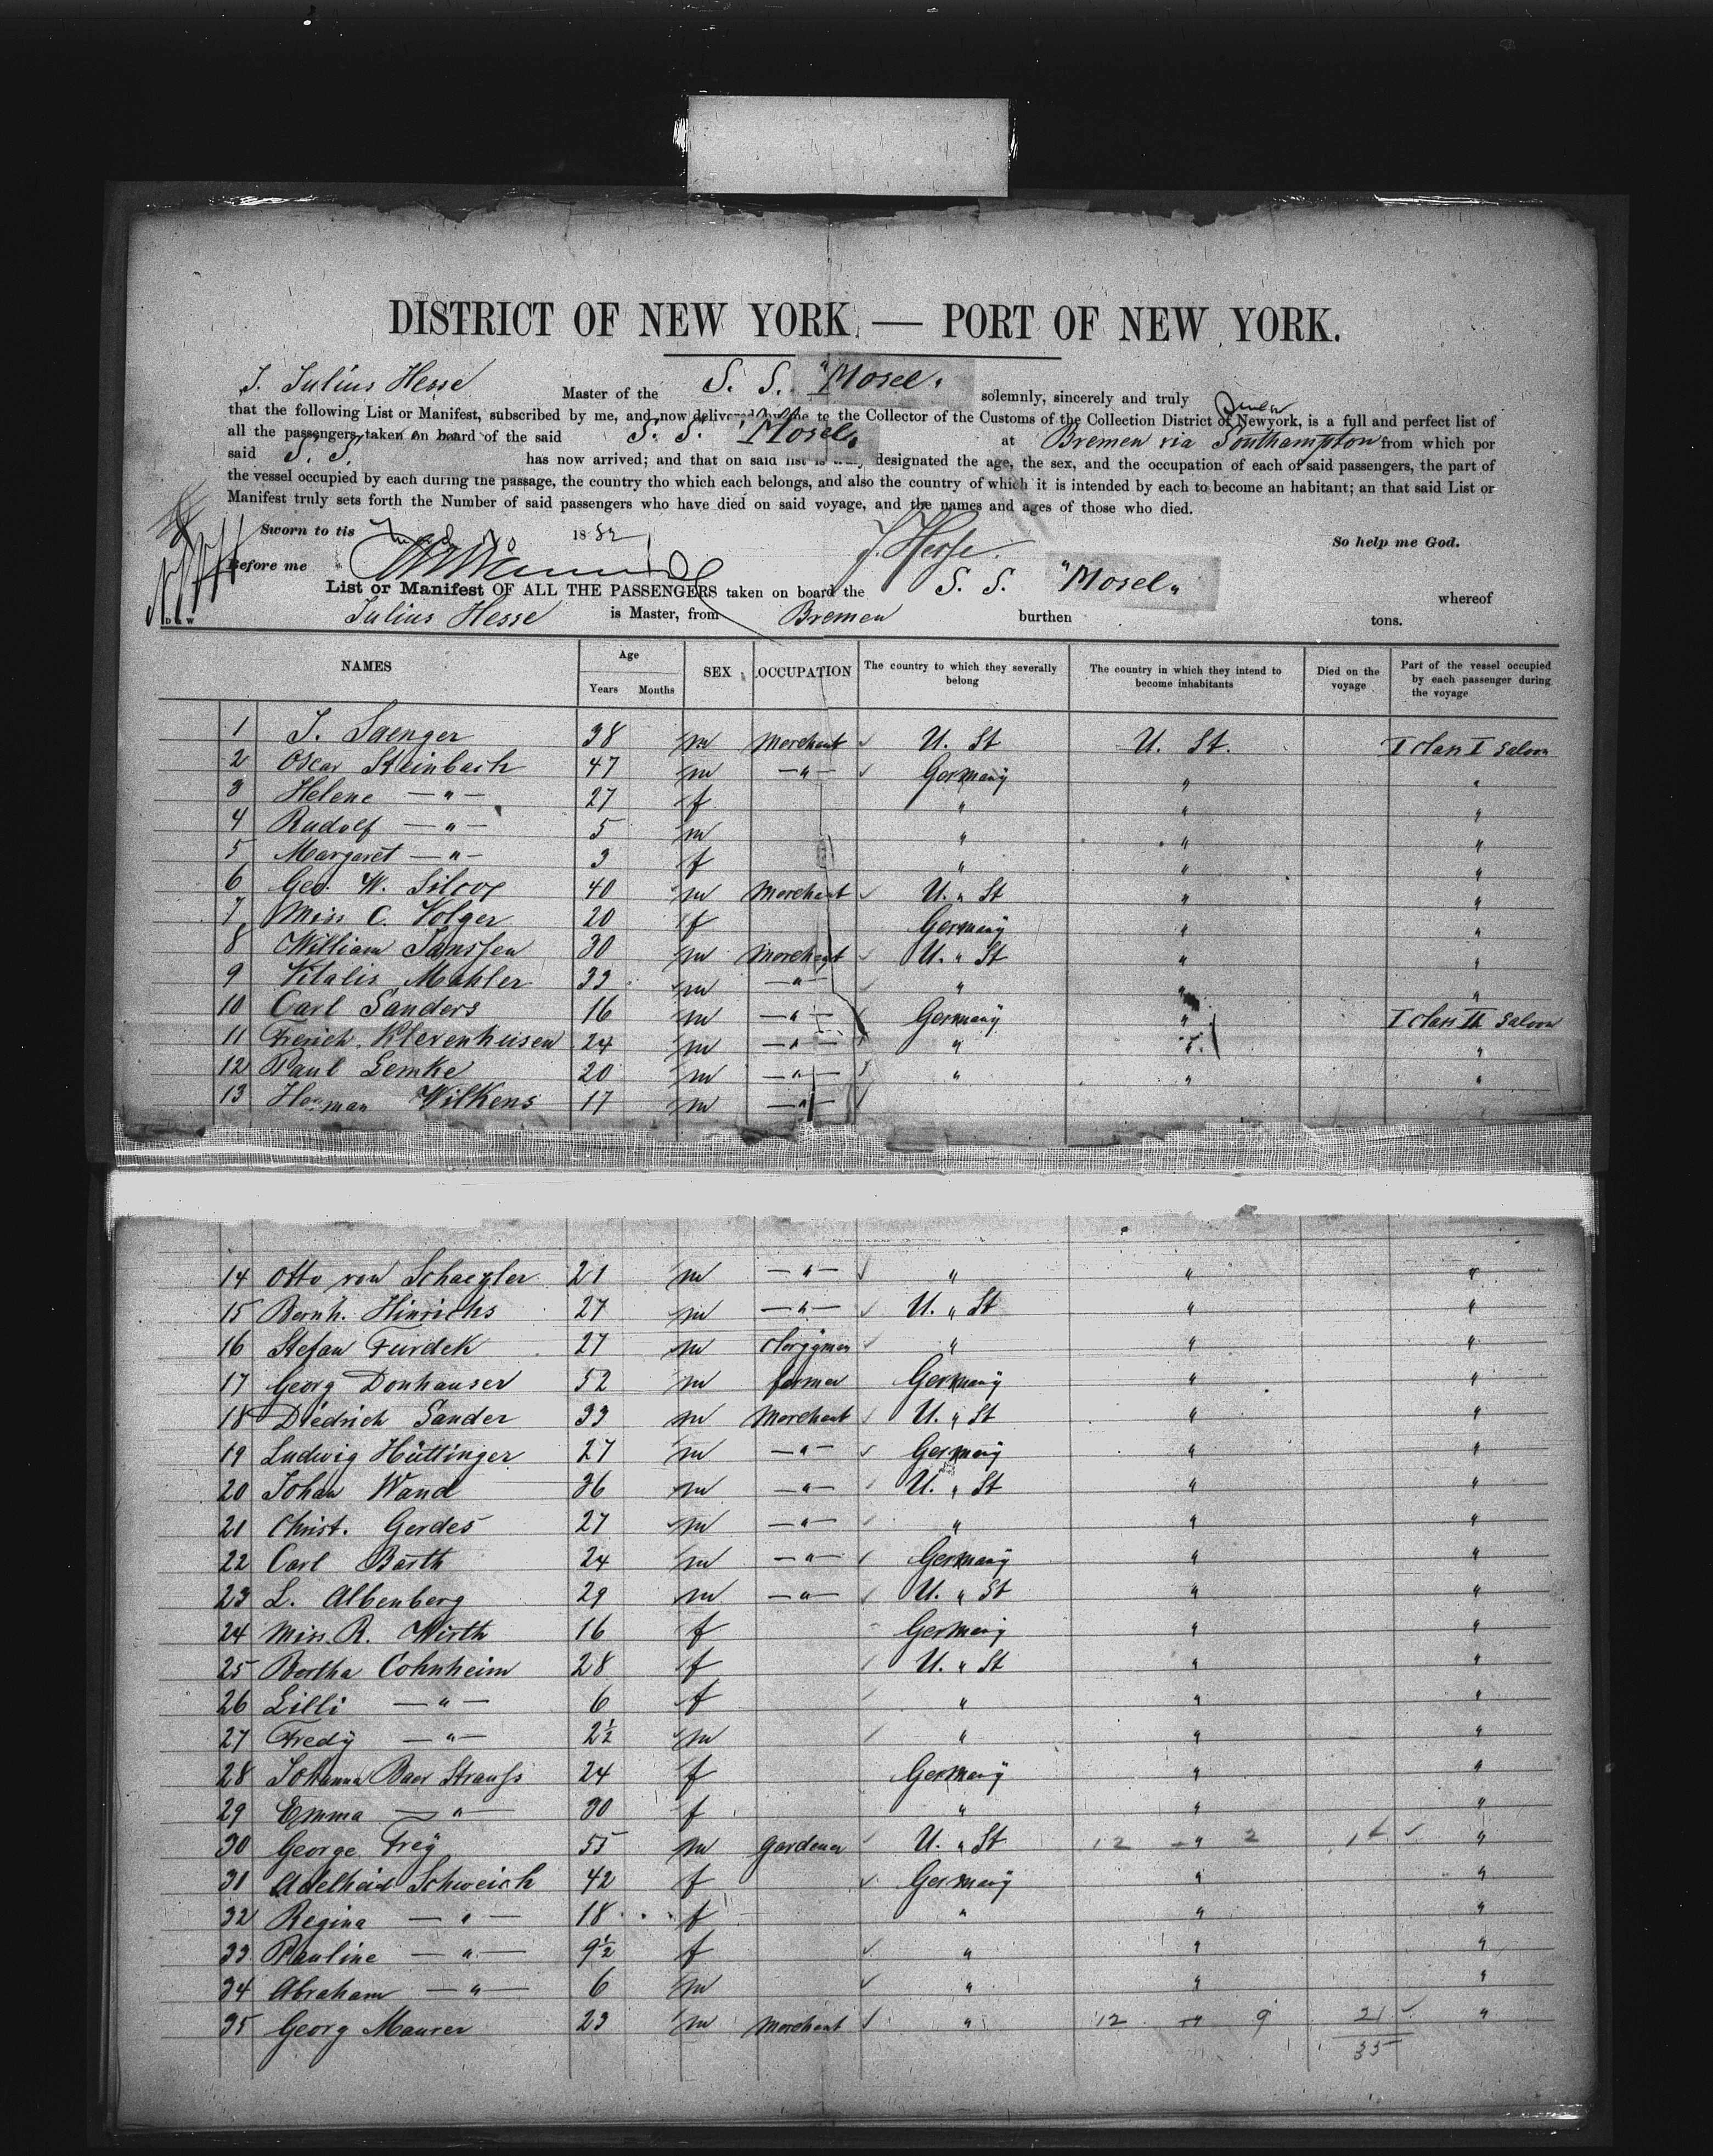 DISTRICT OF NEW YORK — PORT OF NEW YORK.
J. Julius Hesse Master of the S. S. "Mosel" solemnly, sincerely and truly swear
that the following List or Manifest, subscribed by me, and now delivered by me to the Collector of the Customs of the Collection District of Newyork, is a full and perfect list of
all the passengers taken on board of the said S. S. "Mosel" at Bremen via Southampton from which por
said S. S. has now arrived; and that on said list is truly designated the age, the sex, and the occupation of each of said passengers, the part of
the vessel occupied by each during the passage, the country tho which each belongs, and also the country of which it is intended by each to become an habitant; an that said List or
Manifest truly sets forth the Number of said passengers who have died on said voyage, and the names and ages of those who died.
Sworn to tis 1882 J. Hesse. So help me God.
Before me
List or Manifest OF ALL THE PASSENGERS taken on board the S. S. "Mosel" whereof
Julius Hesse is Master, from Bremen burthen tons.
NAMES Age Years Months SEX OCCUPATION The country to which they severally belong The country in which they intend to become inhabitants Died on the voyage Part of the vessel occupied by each passenger during the voyage
1 J. Saenger 38 m Merchant ✓ U. St U. St. I class I Saloon
2 Oscar Steinbach 47 m —"— ✓ Germany " "
3 Helene —"— 27 f " " "
4 Rudolf —"— 5 m " " "
5 Margaret —"— 3 f " " "
6 Geo. W. Silcox 40 m Merchant ✓ U. " St " "
7 Miss C. Volger 20 f Germany " "
8 William Janssen 30 m Merchant ✓ U. " St " "
9 Vitalis Mahler 33 m —"— ✓ " " "
10 Carl Sanders 16 m —"— ✓ Germany " I class II Saloon
11 Frerich Klevenhusen 24 m —"— " " "
12 Paul Lemke 20 m —"— ✓ " " "
13 Herman Wilkens 17 m —"— ✓
14 Otto von Schaezler 21 m —"— ✓ " " "
15 Bernh. Hinrichs 27 m —"— ✓ U. " St " "
16 Stefan Furdek 27 m clergyman ✓ " " "
17 Georg Donhauser 52 m farmer Germany " "
18 Diedrich Sander 33 m Merchant ✓ U. " St " "
19 Ludwig Hüttinger 27 m —"— ✓ Germany " "
20 Johan Wand 36 m —"— ✓ U. " St " "
21 Christ. Gerdes 27 m —"— ✓ " " "
22 Carl Barth 24 m —"— ✓ Germany " "
23 L. Albenberg 29 m —"— ✓ U. " St " "
24 Miss. R. Wirth 16 f Germany " "
25 Bertha Cohnheim 28 f ✓ U. " St " "
26 Lilli —"— 6 f ✓ " " "
27 Fredy —"— 2½ m ✓ " " "
28 Johanna Baer Strauss 24 f Germany " "
29 Emma —"— 30 f " " "
30 George Frey 55 m gardener ✓ U. " St 12 " 2 14 ✓ "
31 Adelheid Schweich 42 f ✓ Germany " "
32 Regina —"— 18 f " " "
33 Pauline —"— 9½ f ✓ " " "
34 Abraham —"— 6 m ✓ " " "
35 Georg Maurer 23 m Merchant ✓ " 12 " 9 21 ✓ "
35